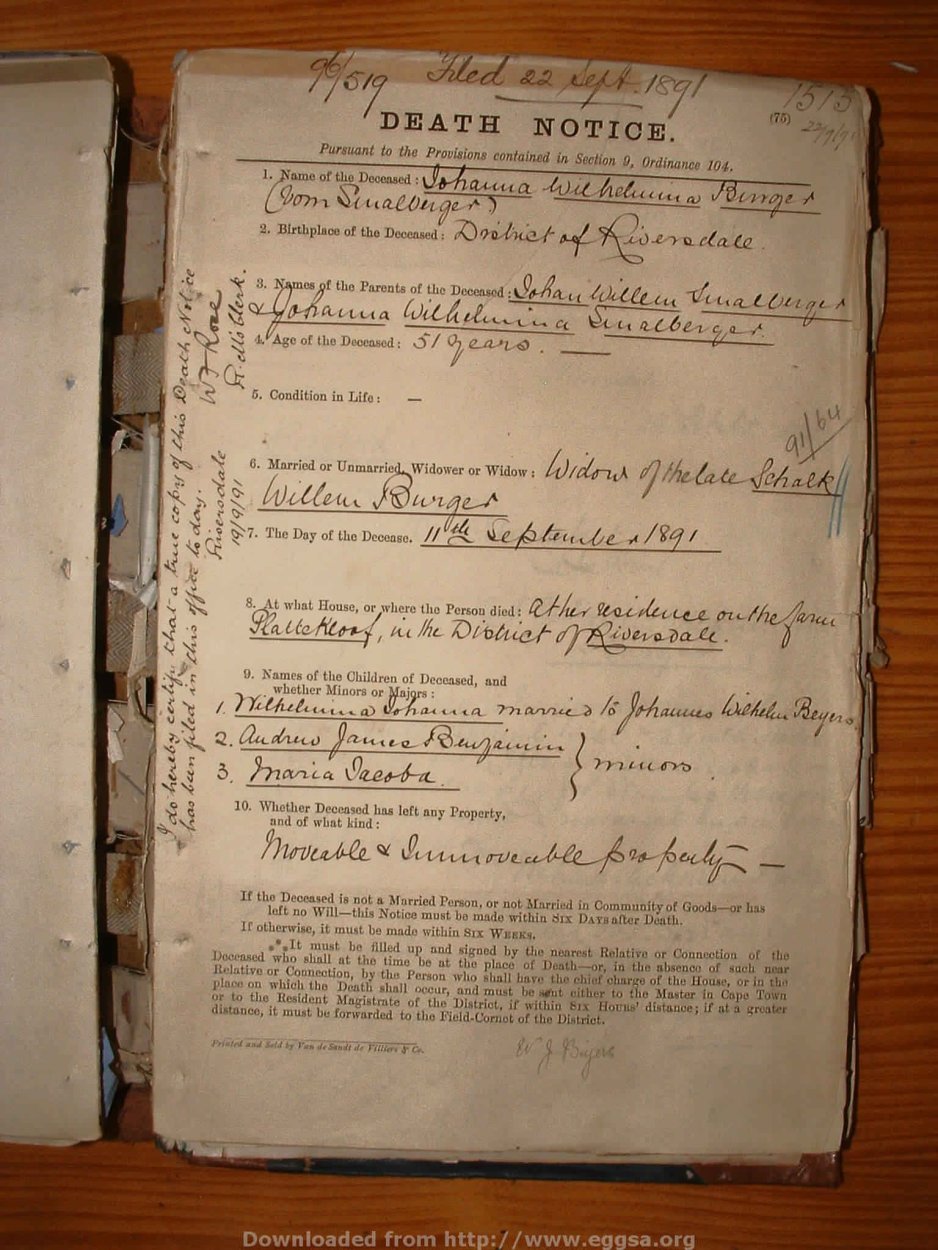 96/519 Filed 22 Sept. 1891
1515
(75)
DEATH NOTICE.
Pursuant to the Provisions contained in Section 9, Ordinance 104.
1. Name of the Deceased: Johanna Wilhelmina Burger
(born Smalberger)
2. Birthplace of the Deceased: District of Riversdale.
3. Names of the Parents of the Deceased: Johan Willem Smalberger
& Johanna Wilhelmina Smalberger.
4. Age of the Deceased: 51 years. —
5. Condition in Life: —
91/64
6. Married or Unmarried, Widower or Widow: Widow of the late Schalk
Willem Burger
7. The Day of the Decease. 11th September 1891
8. At what House, or where the Person died: At her residence on the farm
Plattekloof, in the District of Riversdale.
9. Names of the Children of Deceased, and
whether Minors or Majors:
1. Wilhelmina Johanna married to Johannes Wilhelm Beyers
2. Andrew James Benjamin
3. Maria Jacoba. } minors.
10. Whether Deceased has left any Property,
and of what kind:
Moveable & Immoveable property —
If the Deceased is not a Married Person, or not Married in Community of Goods—or has
left no Will—this Notice must be made within SIX DAYS after Death.
If otherwise, it must be made within SIX WEEKS.
⁂ It must be filled up and signed by the nearest Relative or Connection of the
Deceased who shall at the time be at the place of Death—or, in the absence of such near
Relative or Connection, by the Person who shall have the chief charge of the House, or in the
place on which the Death shall occur, and must be sent either to the Master in Cape Town
or to the Resident Magistrate of the District, if within SIX HOURS' distance; if at a greater
distance, it must be forwarded to the Field-Cornet of the District.
Printed and Sold by Van de Sandt de Villiers & Co.
I do hereby certify that a true copy of this Death Notice
has been filed in this office to day.
Riversdale
19/9/91
Downloaded from http://www.eggsa.org